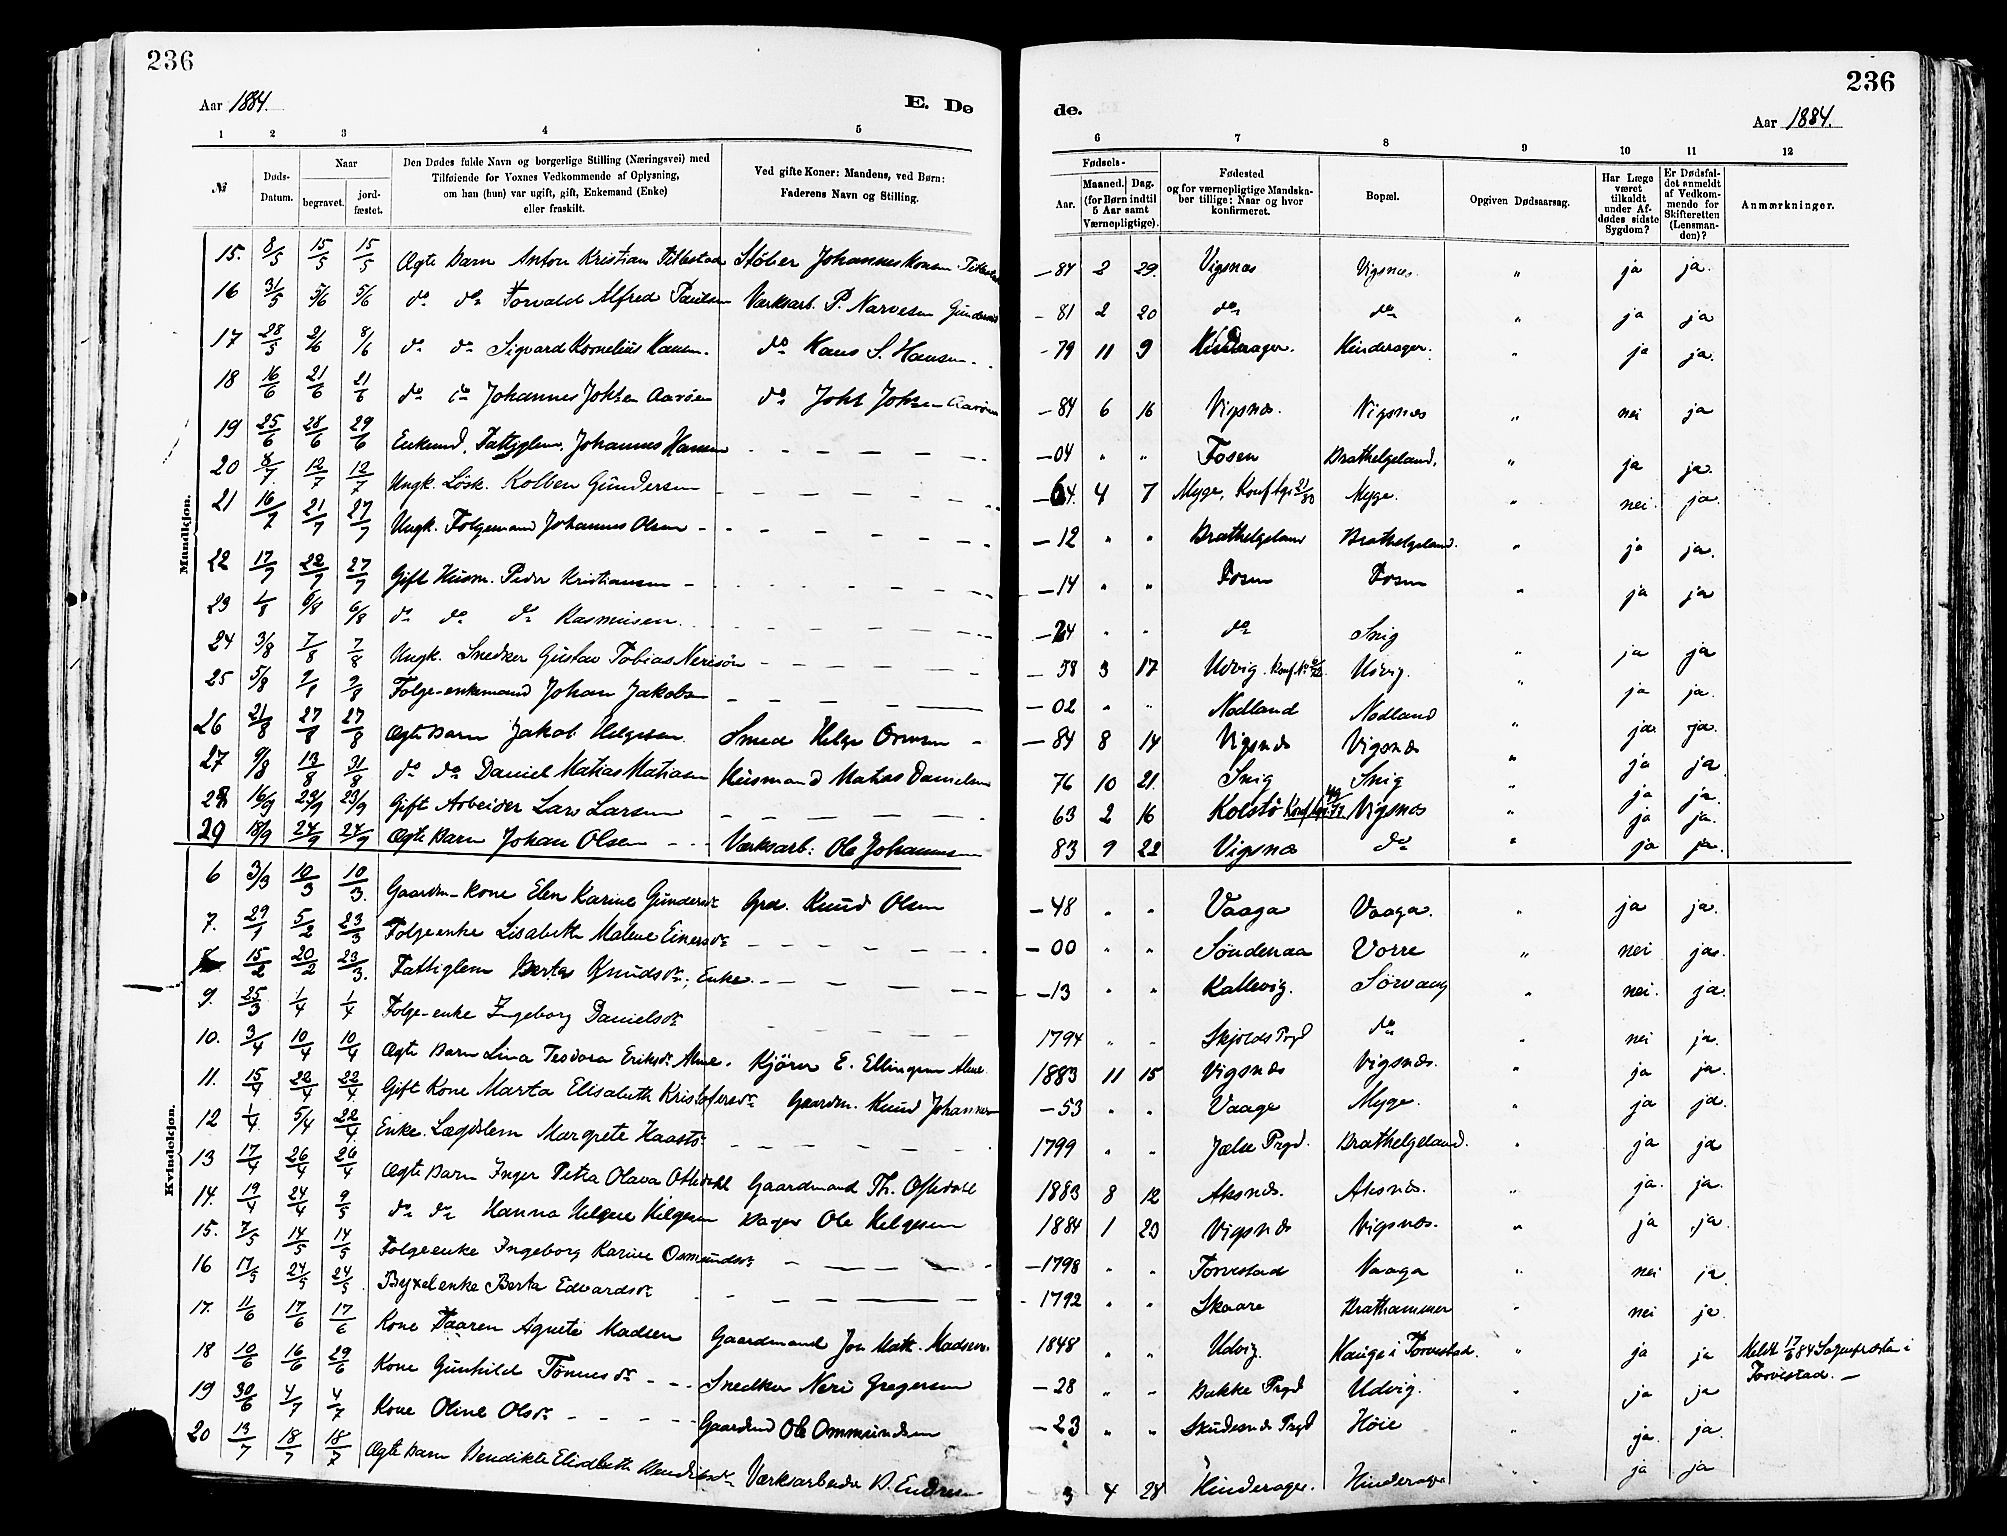 236
Aar 1884.
E. Dø
1 2 3 4 5
№
Døds-Datum.
Naar
begravet.
jord-fæstet.
Den Dødes fulde Navn og borgerlige Stilling (Næringsvei) med
Tilføiende for Voxnes Vedkommende af Oplysning,
om han (hun) var ugift, gift, Enkemand (Enke)
eller fraskilt.
Ved gifte Koner: Mandens, ved Børn:
Faderens Navn og Stilling.
Mandkjøn.
15. 8/5 15/5 15/5 Ægte Barn Anton Kristian Støber Johannes
16 31/5 5/6 5/6 do do Torvald Alfred Værksarb. P. Narvesen
17 28/5 2/6 8/6 do do Sigvard Kornelius Hansen. do Hans S. Hansen.
18 16/6 21/6 21/6 do do Johannes Aarøen do Aarøen
19 25/6 28/6 29/6 Enkemd. Fattiglem. Johannes Hansen
20 8/7 12/7 12/7 Ungk. Løsk. Kolben Gundersen
21 16/7 21/7 27/7 Ungk. Folgemand Johannes Olsen
22 17/7 22/7 27/7 Gift Husm. Peder Kristiansen
23 1/8 6/8 6/8 do do do Rasmusen
24 3/8 7/8 7/8 Ungk. Snedker Gustav Tobias Nerisøn
25 5/8 9/8 9/8 Folge-enkemand Johan Jakobsen
26 21/8 27/8 27/8 Ægte Barn Jakob Helgesen Smed Helge
27 9/8 13/8 31/8 do do Daniel Matias Matiasen Husmand Matias Danielsen
28 16/9 23/9 23/9 Gift Arbeider Lars Larsen
29 18/9 24/9 24/9 Ægte Barn Johan Olsen Værksarb: Ole Johannesen
Kvindekjøn.
6 3/3 10/3 10/3. Gaardm-kone Elen Karine Gundersdr Grd. Knud Olsen
7. 29/1 5/2 23/3 Folgeenke Lisabeth Malene Einersdr
15/2 20/2 23/3. Fattiglem Berta Knudsdr. Enke.
9. 25/3 1/4 1/4 Folge-enke Ingeborg Danielsdr
10. 3/4 10/4 10/4 Ægte Barn Lina Teodora Eriksdr Kjører E. Ellingsen
11. 15/4 22/4 22/4 Gift Kone Marta Elisabeth Kristofersdr Gaardm. Knud Johannesen
12 1/4. 5/4 22/4 Enke. Lægdslem Margrete
13 17/4 26/4 26/4 Ægte Barn Inger Petra Olava Oftedahl Gaardmand Th. Oftedahl
14. 19/4 24/4 9/5 do do Hanna Helgesen Bager Ole Helgesen
15. 7/5 14/5 14/5 Folgeenke Ingeborg Karine Osmundsdr
16 17/5 24/5 24/5. Byxelenke Berta Edvardsdr
17. 11/6 17/6 17/6 Kone Agnete Madsen Gaardmand Jon Matt. Madsen.
18 10/6 16/6 29/6 Kone Gunhild Tønnesdr Snedker Neri Gregersen
19 30/6 4/7 4/7 Kone Oline Olsdr Gaardmd Ole Ommundsen
20 13/7 18/7 18/7 Ægte Barn Bendikte Elisabeth Værksarbeider B. Endresen
236
de.
Aar 1884.
6 7 8 9 10 11 12
Fødsels-
Aar.
Maaned. Dag.
(for Børn indtil
5 Aar samt
Værnepligtige).
Fødested
og for værnepligtige Mandska-
ber tillige: Naar og hvor
konfirmeret.
Bopæl.
Opgiven Dødsaarsag.
Har Læge
været
tilkaldt
under Af-
dødes sidste
Sygdom?
Er Dødsfal-
det anmeldt
af Vedkom-
mende for
Skifteretten
(Lensman-
den)?
Anmærkninger.
-84 2 29. Vigsnes Vigsnes. " ja ja.
-81 2 20 do do " ja ja
-79 11 9 Hinderager. Hinderager. " ja ja.
-84 6 16 Vigsnes. Vigsnes " nei ja
-04 " " Fosen Brathelgeland. " ja ja.
-64. 4 7 Myge, Konf. Myge. " nei. ja.
-12 " " Brathelgeland Brathelgeland. " ja ja.
-14 " " Fosen Fosen " ja ja
-24 " " do Snig " ja ja
-58 3 17 Udvig. Konf. Udvig. " ja ja.
-02 " " Nodland Nodland " ja ja.
-84 8 14 Vigsnes Vigsnes " ja ja
76 10 21. Snig Snig " ja ja.
63 2 16 Kolstø Konf. Vigsnes " ja ja.
83 9 22 Vigsnes do " ja ja.
-48 " " Vaaga Vaaga. " ja ja.
-00 " " Søndenaa Vorre " nei ja.
-13 " " Kallevig. Sørvaag " nei. ja.
1794 " " Skjolds Prgd do " nei ja.
1883 11 15 Vigsnes Vigsnes. " ja ja.
-53 " " Vaage Myge. " ja ja.
1799 " " Jælse Prgd. Brathelgeland. " ja ja
1883 8 12 Aksnes. Aksnes. " ja. ja.
1884 1 23 Vigsnes Vigsnes. " ja ja
-1798 " " Torvestad Vaaga " nei ja.
-1792 " " Skaare Brathammer " nei ja.
1848 " " Udvig. Hauge i Torvestad. " ja ja Meldt 17/6 84 Sogneprsten i
Torvestad.
-28 " " Bakke Prgd Udvig. " ja ja
-23 " " Skudesnes Prgd Høie " ja. ja.
3 4 28 Hinderager. Hinderager " ja ja